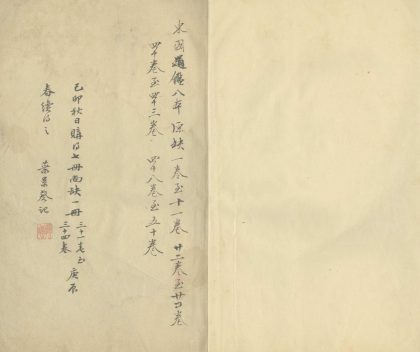 東國通鑑八本 原缺一卷至十一卷 廿二卷至廿四卷
四十卷至四十三卷 四十八卷至五十卷
己卯秋日購得七冊尚缺一冊 三十一卷至三十四卷 庚辰
春續得之 葉景葵記